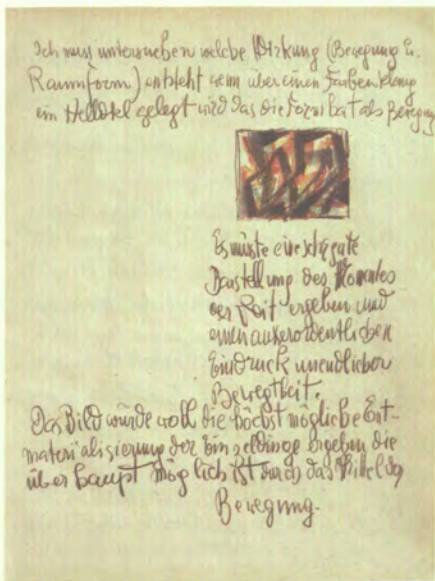 Ich muss untersuchen welche Wirkung (Bewegung u.
Raumform) entsteht wenn über einen Farbenklang
ein Helldkl gelegt wird das die Form hat als Bewegung
Es müsste eine
Darstellung des Momentes
der Zeit ergeben und
einen außerordentlichen
Eindruck unendlicher
Bewegtheit.
Das Bild würde wohl die höchst mögliche Ent-
materialisierung der Einzeldinge ergeben die
überhaupt möglich ist durch das Mittel der
Bewegung.